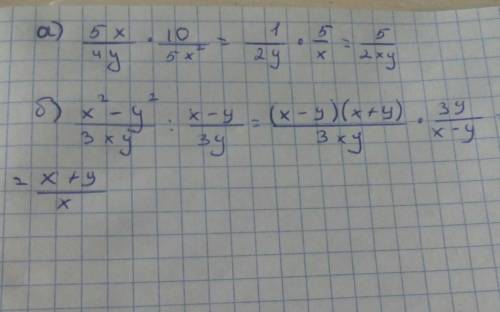 а) 5x/4y · 10/5x² = 1/2y · 5/x = 5/2xy
б) x² - y²/3xy : x-y/3y = (x-y)(x+y)/3xy · 3y/x-y
= x+y/x